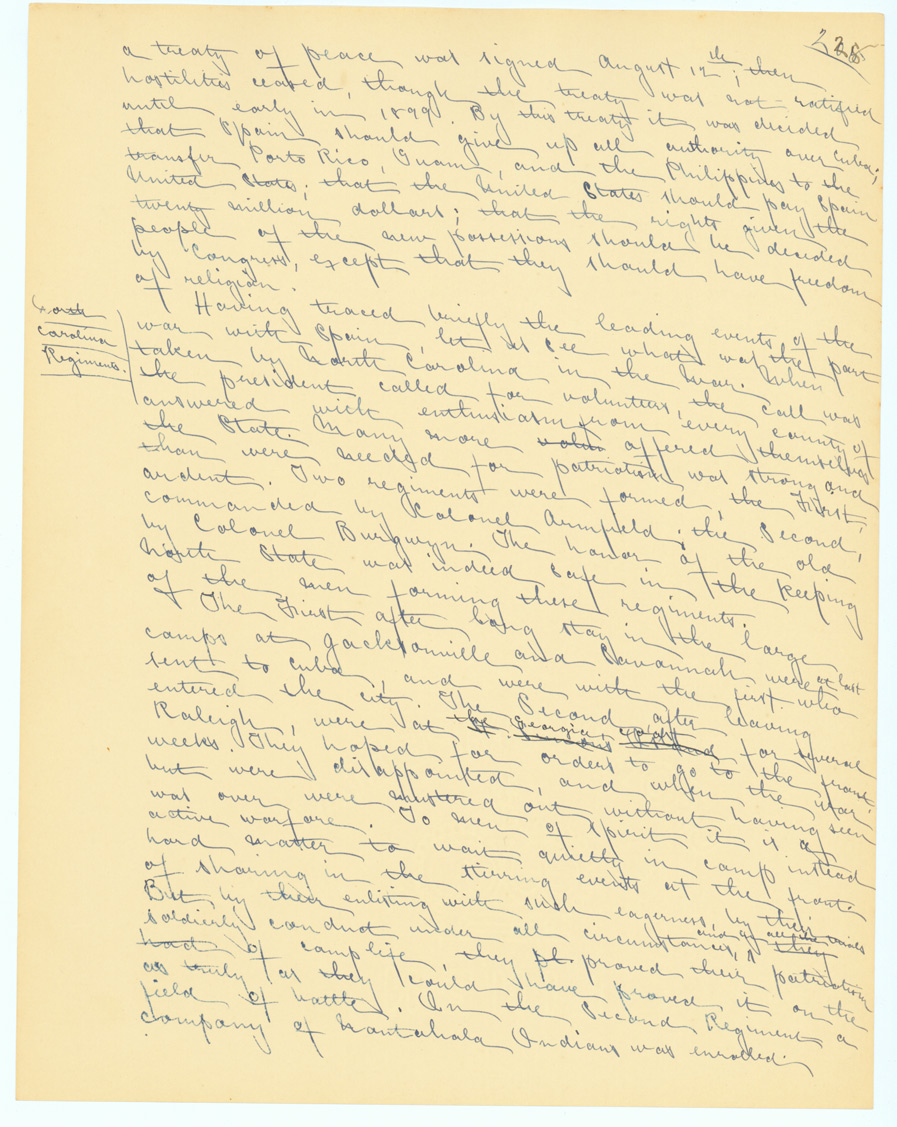 228
a treaty of peace was signed August 12th; then
hostilities ceased, though the treaty was not ratified
until early in 1899. By this treaty it was decided
that Spain should give up all authority over Cuba;
transfer Porto Rico, Guam, and the Philippines to the
United States; that the United States should pay Spain
twenty million dollars; that the rights given the
people of the new possessions should be decided
by Congress, except that they should have freedom
of religion.
North
Carolina
Regiments.
Having traced briefly the leading events of the
war with Spain, let us see what was the part
taken by North Carolina in the war. When
the president called for volunteers, the call was
answered with enthusiasm from every county of
the State. Many more offered themselves
than were needed for patriotism was strong and
ardent. Two regiments were formed, the First,
commanded by Colonel Armfield; the Second,
by Colonel Burgwyn. The honor of the old
North State was indeed safe in the keeping
of the men forming these regiments.
The First after long stay in the large
camps at Jacksonville and Savannah were at last
sent to Cuba, and were with the first who
entered the city. The Second after leaving
Raleigh, were at the Georgia coast for several
weeks. They hoped for orders to go to the front
but were disappointed, and when the war
was over were mustered out without having seen
active warfare. To men of spirit it is a
hard matter to wait quietly in camp instead
of sharing in the stirring events at the front.
But by their enlisting with such eagerness, by their
soldierly conduct under all circumstances, and by all the
had of camp life, they proved their patriotism
as truly as they could have proved it on the
field of battle. In the Second Regiment a
company of Nantahala Indians was enrolled.